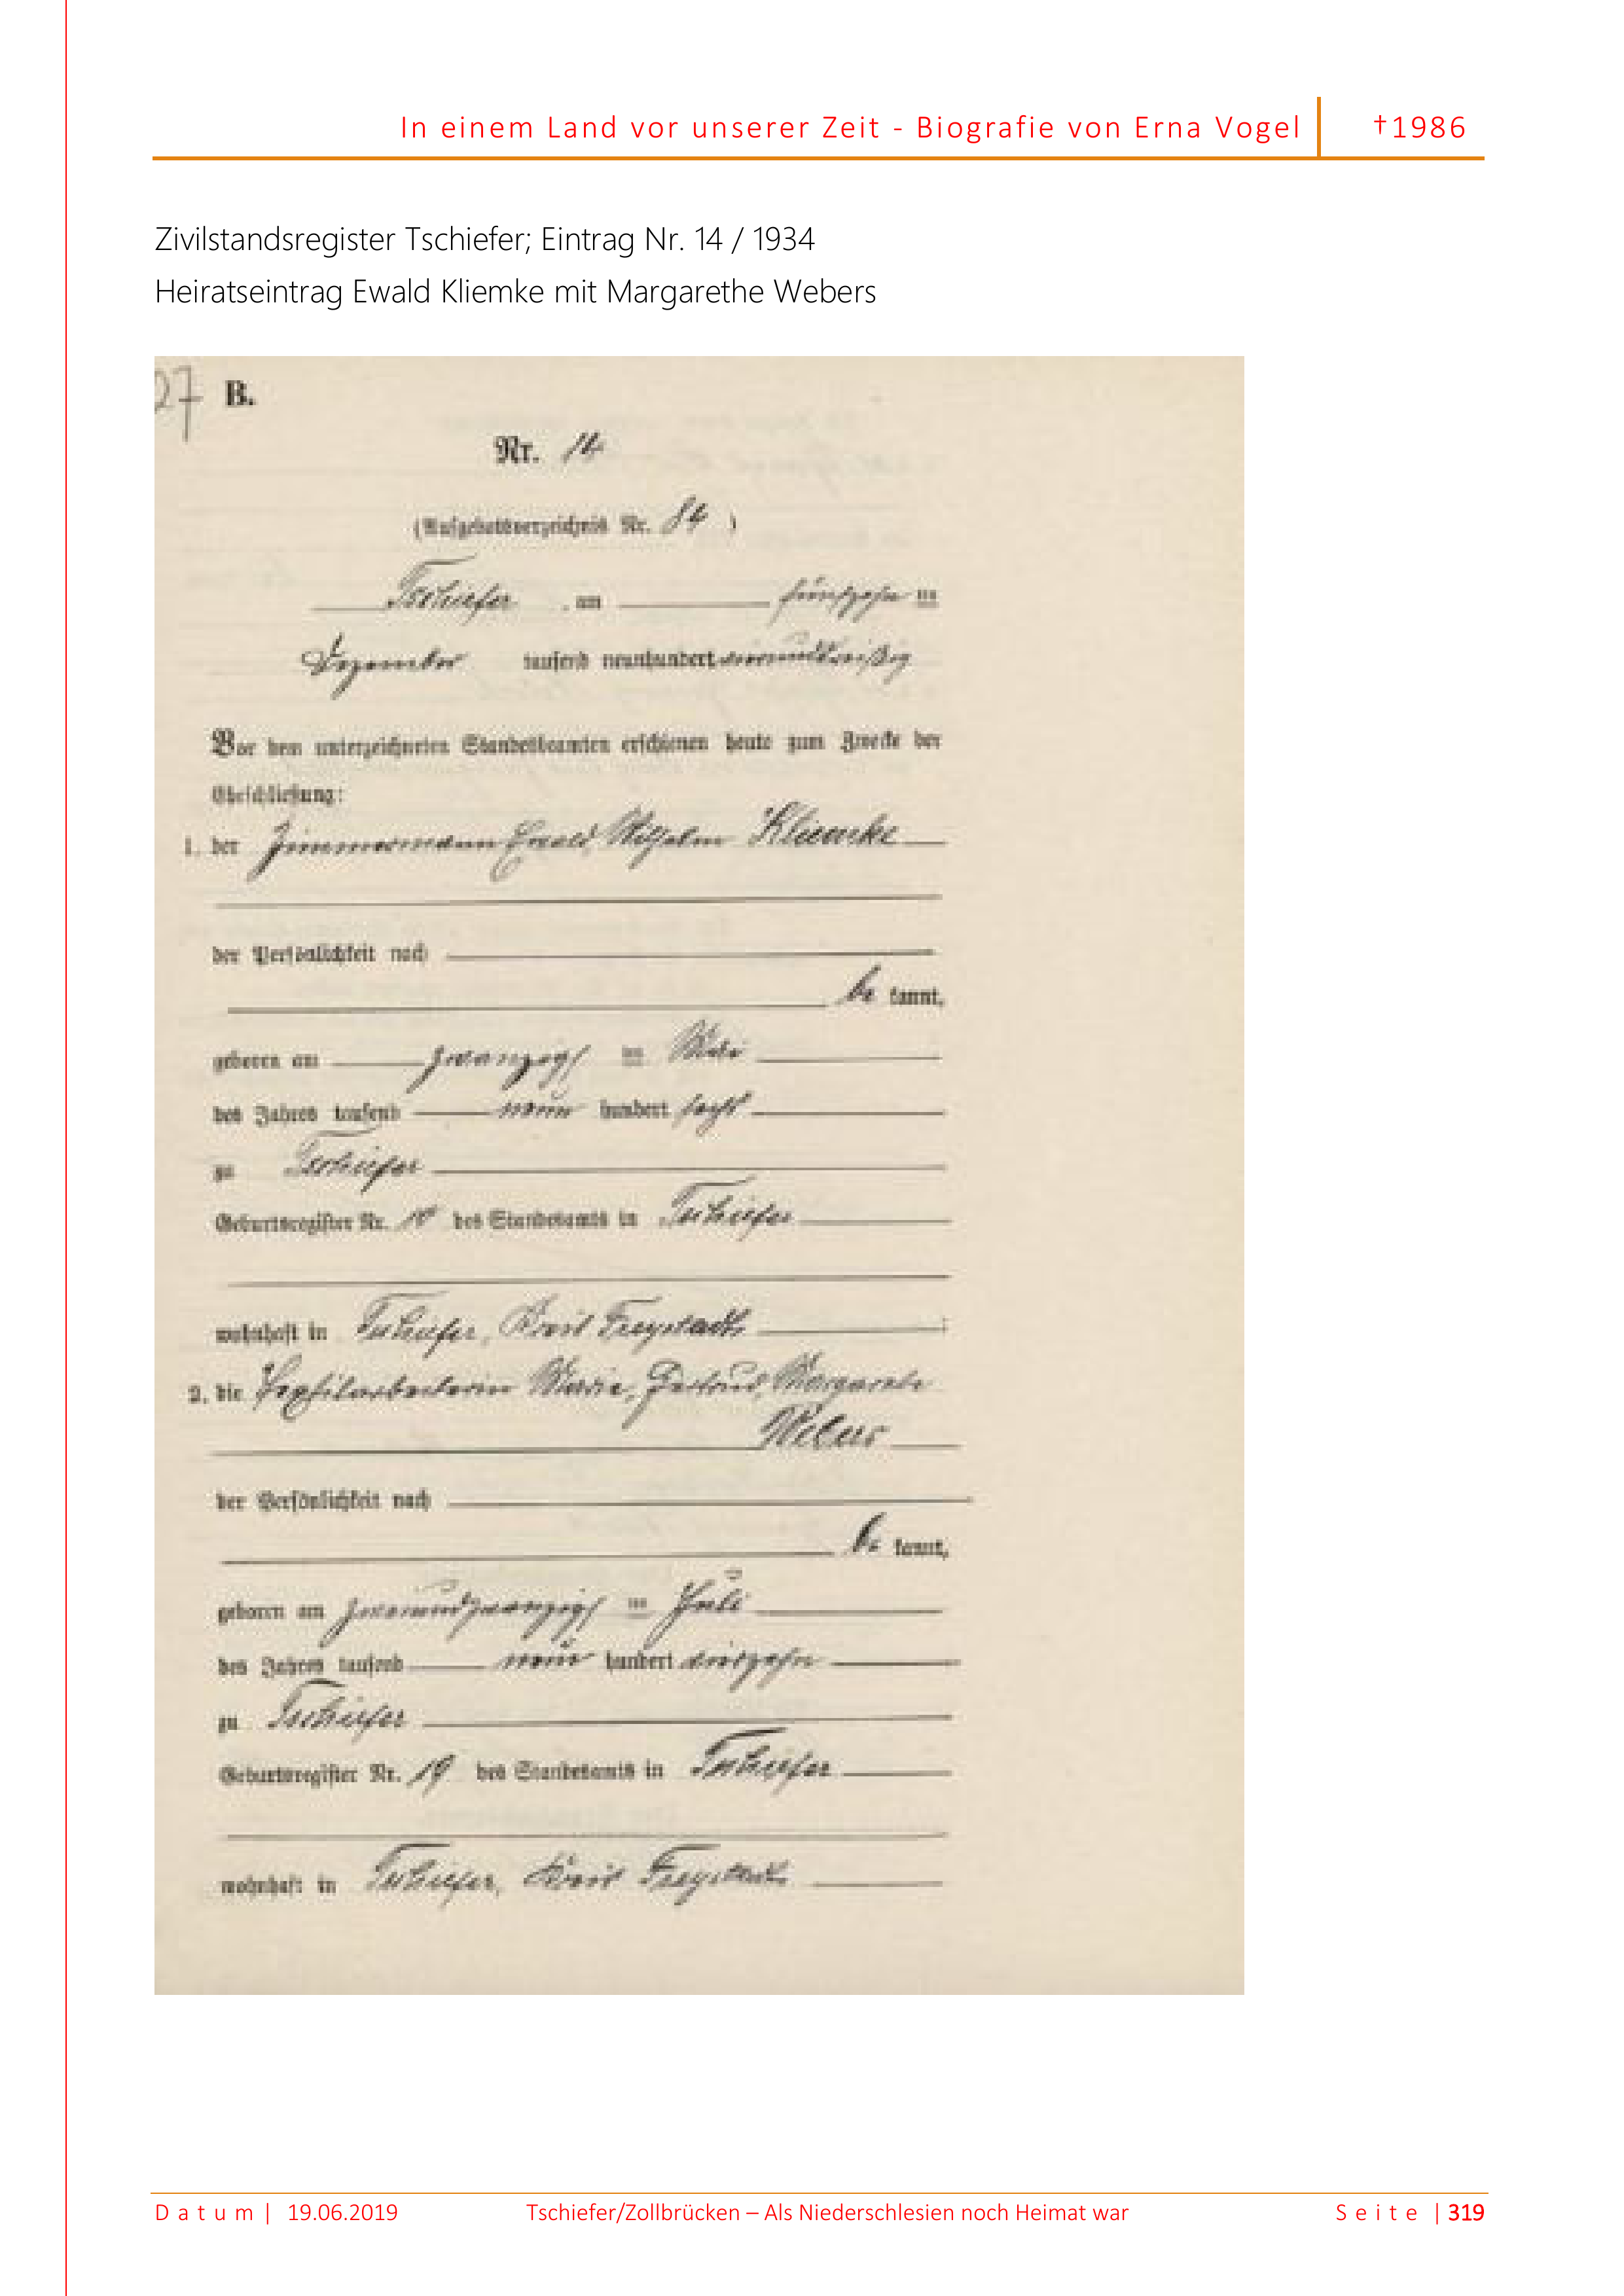 In einem Land vor unserer Zeit - Biografie von Erna Vogel
†1986
Zivilstandsregister Tschiefer; Eintrag Nr. 14 / 1934
Heiratseintrag Ewald Kliemke mit Margarethe Webers
27 B.
Nr. 14
(Aufgebotsverzeichnis Nr. 84)
Tschiefer, am fünfzehn ten
Dezember tausend neunhundert vierunddreißig
Vor dem unterzeichneten Standesbeamten erschienen heute zum Zwecke der
Eheschließung:
1. der Zimmermann Ewald, Wilhelm Kliemke
der Persönlichkeit nach
be kannt,
geboren am zwanzigs ten Mai
des Jahres tausend neun hundert sechs
zu Tschiefer
Geburtsregister Nr. des Standesamts in Tschiefer
wohnhaft in Tschiefer, Kreis Freystadt;
2. die Textilarbeiterin Marie, Gertrud, Margarete
Webers
der Persönlichkeit nach
be kannt,
geboren am zweiundzwanzigs ten Juli
des Jahres tausend neun hundert vierzehn
zu Tschiefer
Geburtsregister Nr. 19 des Standesamts in Tschiefer
wohnhaft in Tschiefer, Kreis Freystadt
Datum | 19.06.2019 Tschiefer/Zollbrücken – Als Niederschlesien noch Heimat war Seite | 319